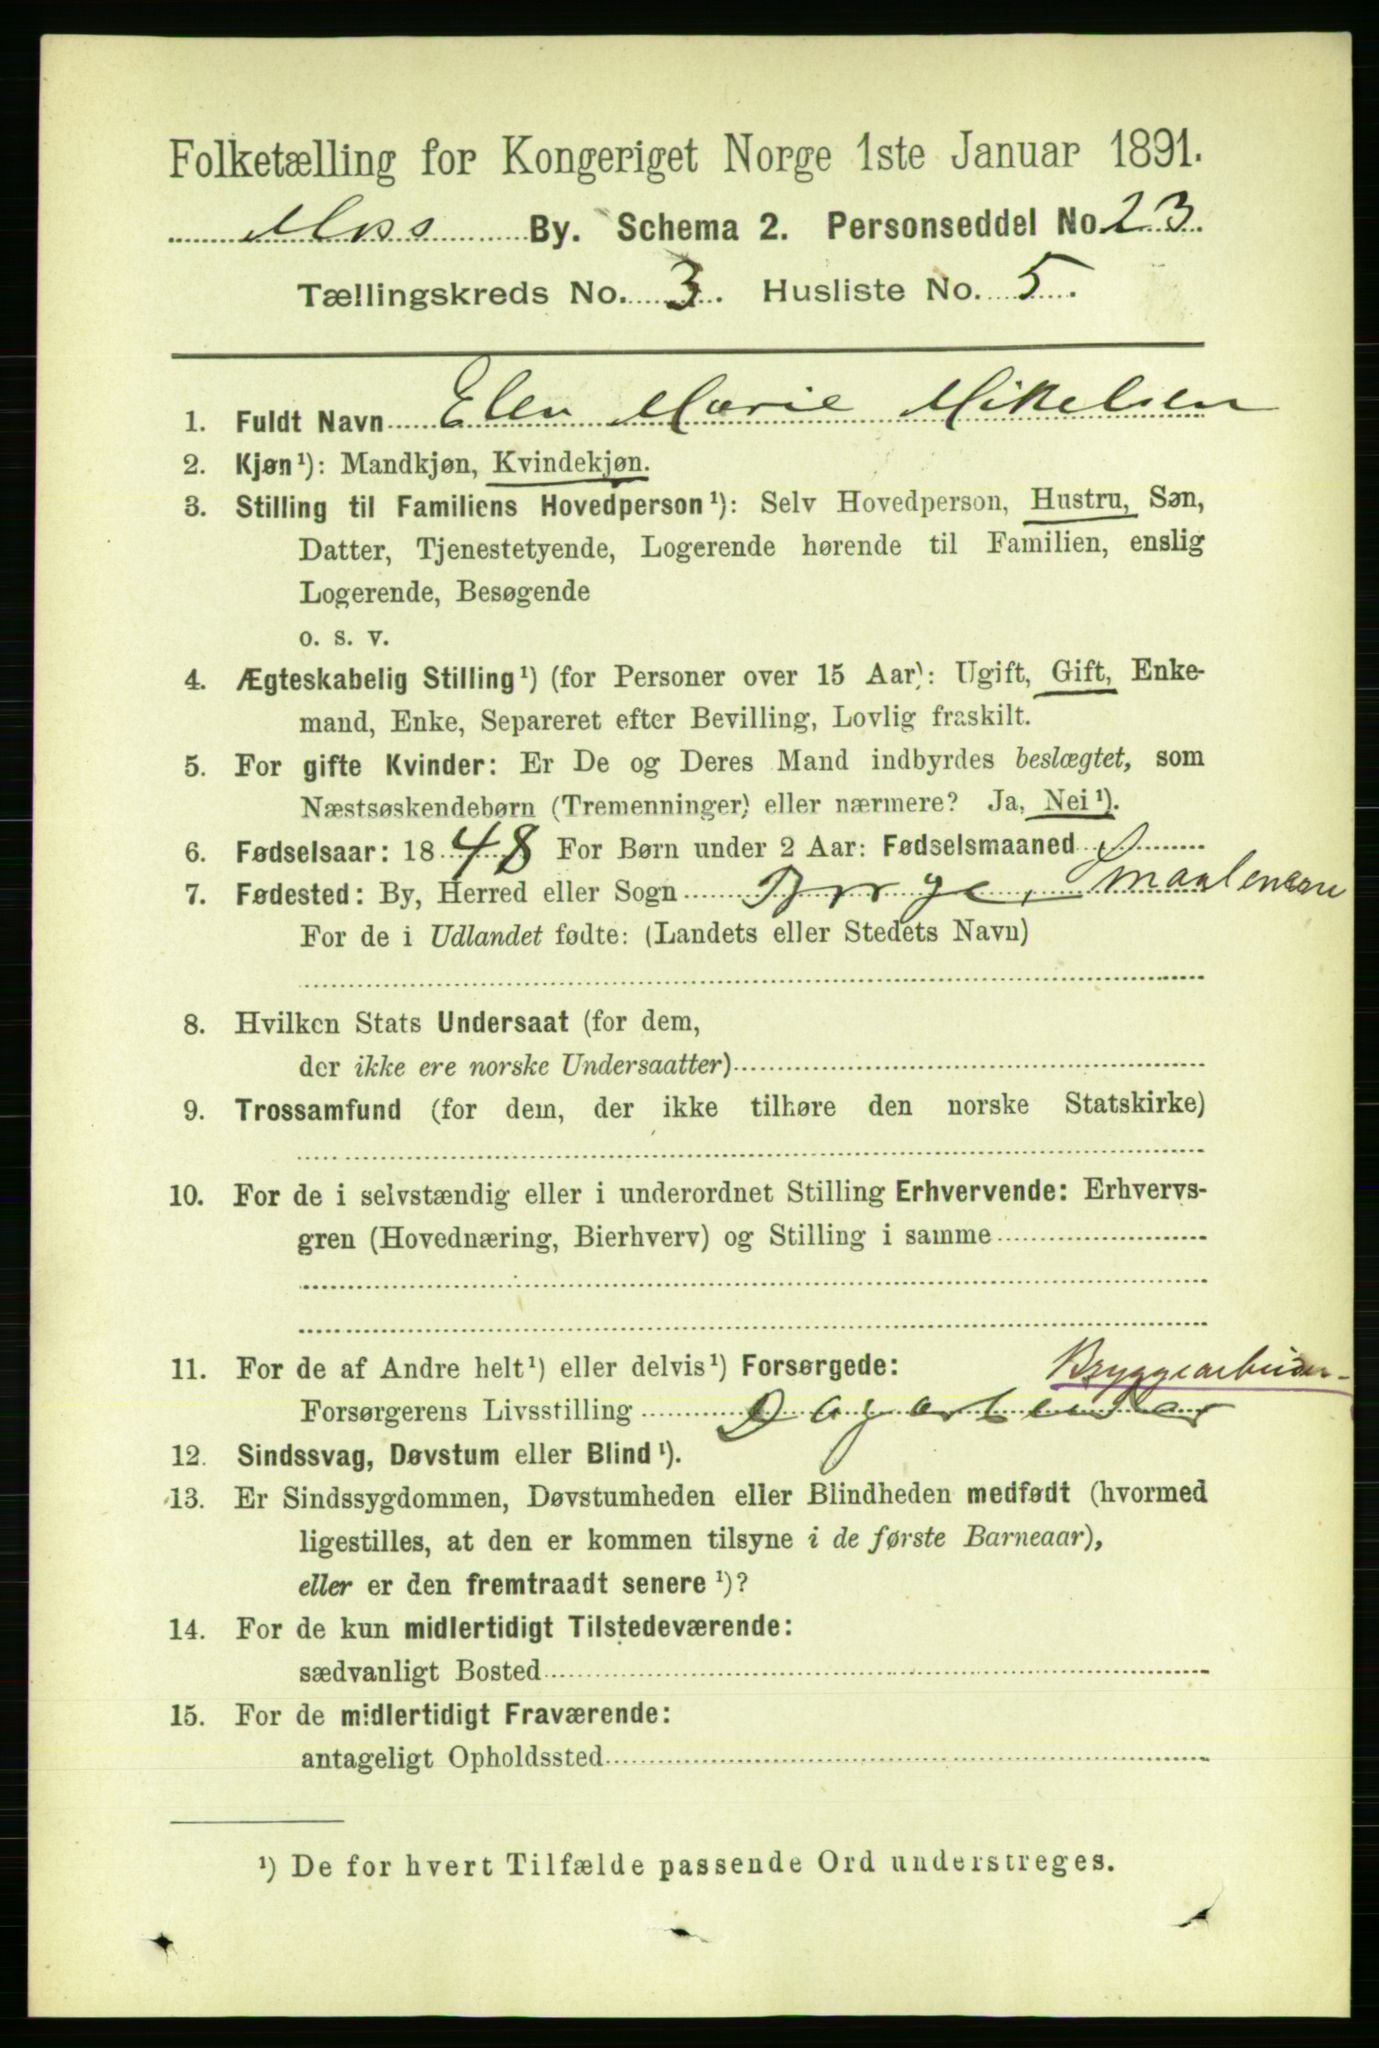 Folketælling for Kongeriget Norge 1ste Januar 1891.
Moss By. Schema 2. Personseddel No. 23.
Tællingskreds No. 3. Husliste No. 5.
1. Fuldt Navn Elen Marie Mikelsen
2. Kjøn¹): Mandkjøn, Kvindekjøn.
3. Stilling til Familiens Hovedperson¹): Selv Hovedperson, Hustru, Søn,
Datter, Tjenestetyende, Logerende hørende til Familien, enslig
Logerende, Besøgende
o. s. v.
4. Ægteskabelig Stilling¹) (for Personer over 15 Aar): Ugift, Gift, Enke-
mand, Enke, Separeret efter Bevilling, Lovlig fraskilt.
5. For gifte Kvinder: Er De og Deres Mand indbyrdes beslægtet, som
Næstsøskendebørn (Tremenninger) eller nærmere? Ja, Nei¹).
6. Fødselsaar: 1848 For Børn under 2 Aar: Fødselsmaaned
7. Fødested: By, Herred eller Sogn Borge, Smaalenene
For de i Udlandet fødte: (Landets eller Stedets Navn)
8. Hvilken Stats Undersaat (for dem,
der ikke ere norske Undersaatter)
9. Trossamfund (for dem, der ikke tilhøre den norske Statskirke)
10. For de i selvstændig eller i underordnet Stilling Erhvervende: Erhvervs-
gren (Hovednæring, Bierhverv) og Stilling i samme
11. For de af Andre helt¹) eller delvis¹) Forsørgede: Bryggearbeider
Forsørgerens Livsstilling Dagarbeidar
12. Sindssvag, Døvstum eller Blind¹).
13. Er Sindssygdommen, Døvstumheden eller Blindheden medfødt (hvormed
ligestilles, at den er kommen tilsyne i de første Barneaar),
eller er den fremtraadt senere¹)?
14. For de kun midlertidigt Tilstedeværende:
sædvanligt Bosted
15. For de midlertidigt Fraværende:
antageligt Opholdssted
¹) De for hvert Tilfælde passende Ord understreges.